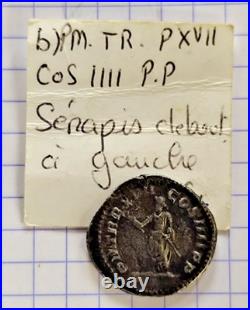 b) PM. TR. P XVII
COS IIII P.P
Sérapis debout
à gauche
COS IIII PP